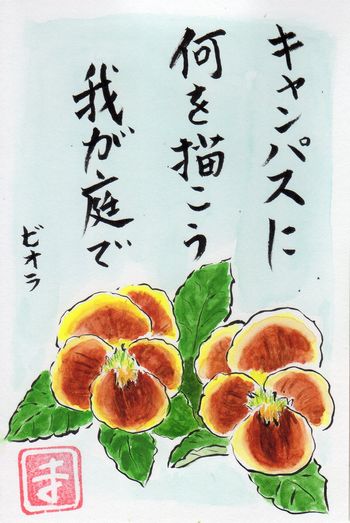 キャンパスに
何を描こう
我が庭で
ビオラ
ま